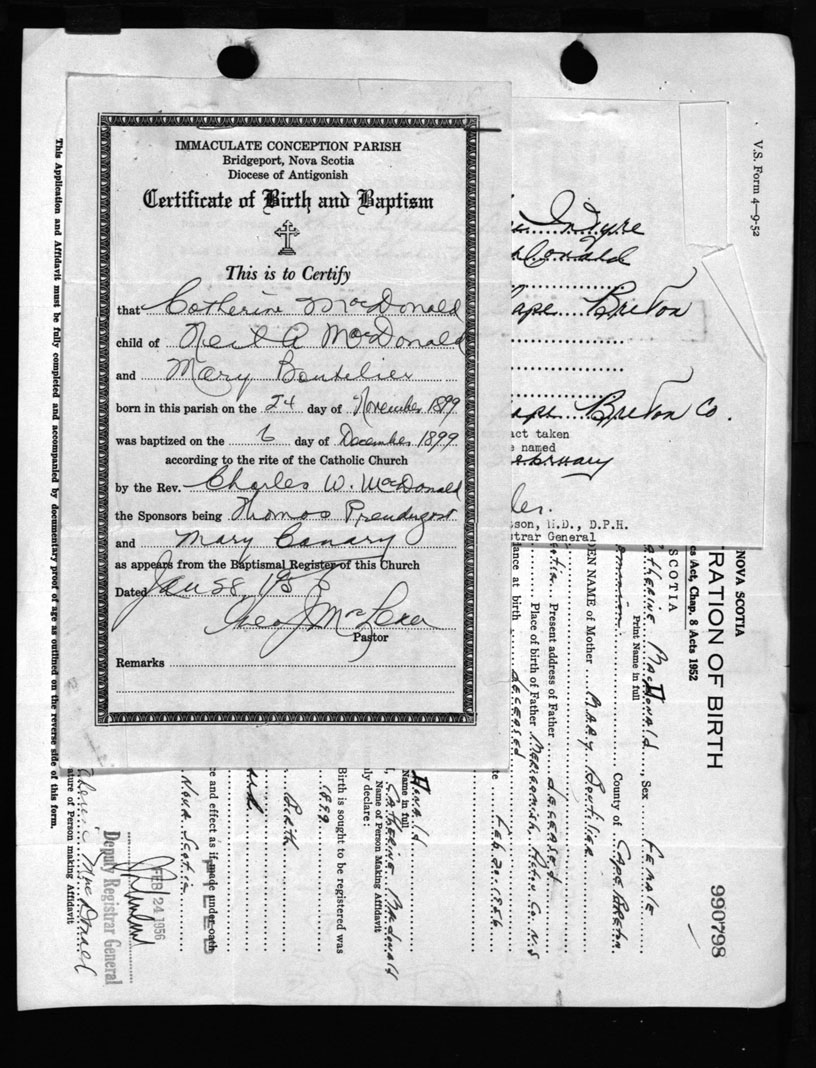 IMMACULATE CONCEPTION PARISH
Bridgeport, Nova Scotia
Diocese of Antigonish
Certificate of Birth and Baptism
This is to Certify
that Catherine MacDonald
child of Neil A MacDonald
and Mary Boutilier
born in this parish on the 24 day of November 1899
was baptized on the 6 day of December 1899
according to the rite of the Catholic Church
by the Rev. Charles W. McDonald
the Sponsors being Thomas Prendergast
and Mary Canary
as appears from the Baptismal Register of this Church
Dated Jan 28, 1956
Pastor
Remarks
V.S. Form 4—9-52
Intyre
Donald
ape Breton
ape Breton Co.
act taken
e named
ebruary
son, M.D., D.P.H.
strar General
NOVA SCOTIA
TRATION OF BIRTH
990798
es Act, Chap. 8 Acts 1952
SCOTIA
atherine MacDonald, Sex Female
Print Name in full
County of Cape Breton
DEN NAME of Mother Mary Boutilier
Present address of Father Deceased
Place of birth of Father Merigomish, Pictou Co. N.S
lance at birth Deceased
te Feb. 20. 1956
Donald
Name in full
I, Catherine MacDonald
Name of Person Making Affidavit
ly declare:
Birth is sought to be registered was
1899
Birth
ce and effect as if made under oath
Nova Scotia
FEB 24 1956
Deputy Registrar General
therine MacDonald
ature of Person making Affidavit
This Application and Affidavit must be fully completed and accompanied by documentary proof of age as outlined on the reverse side of this form.